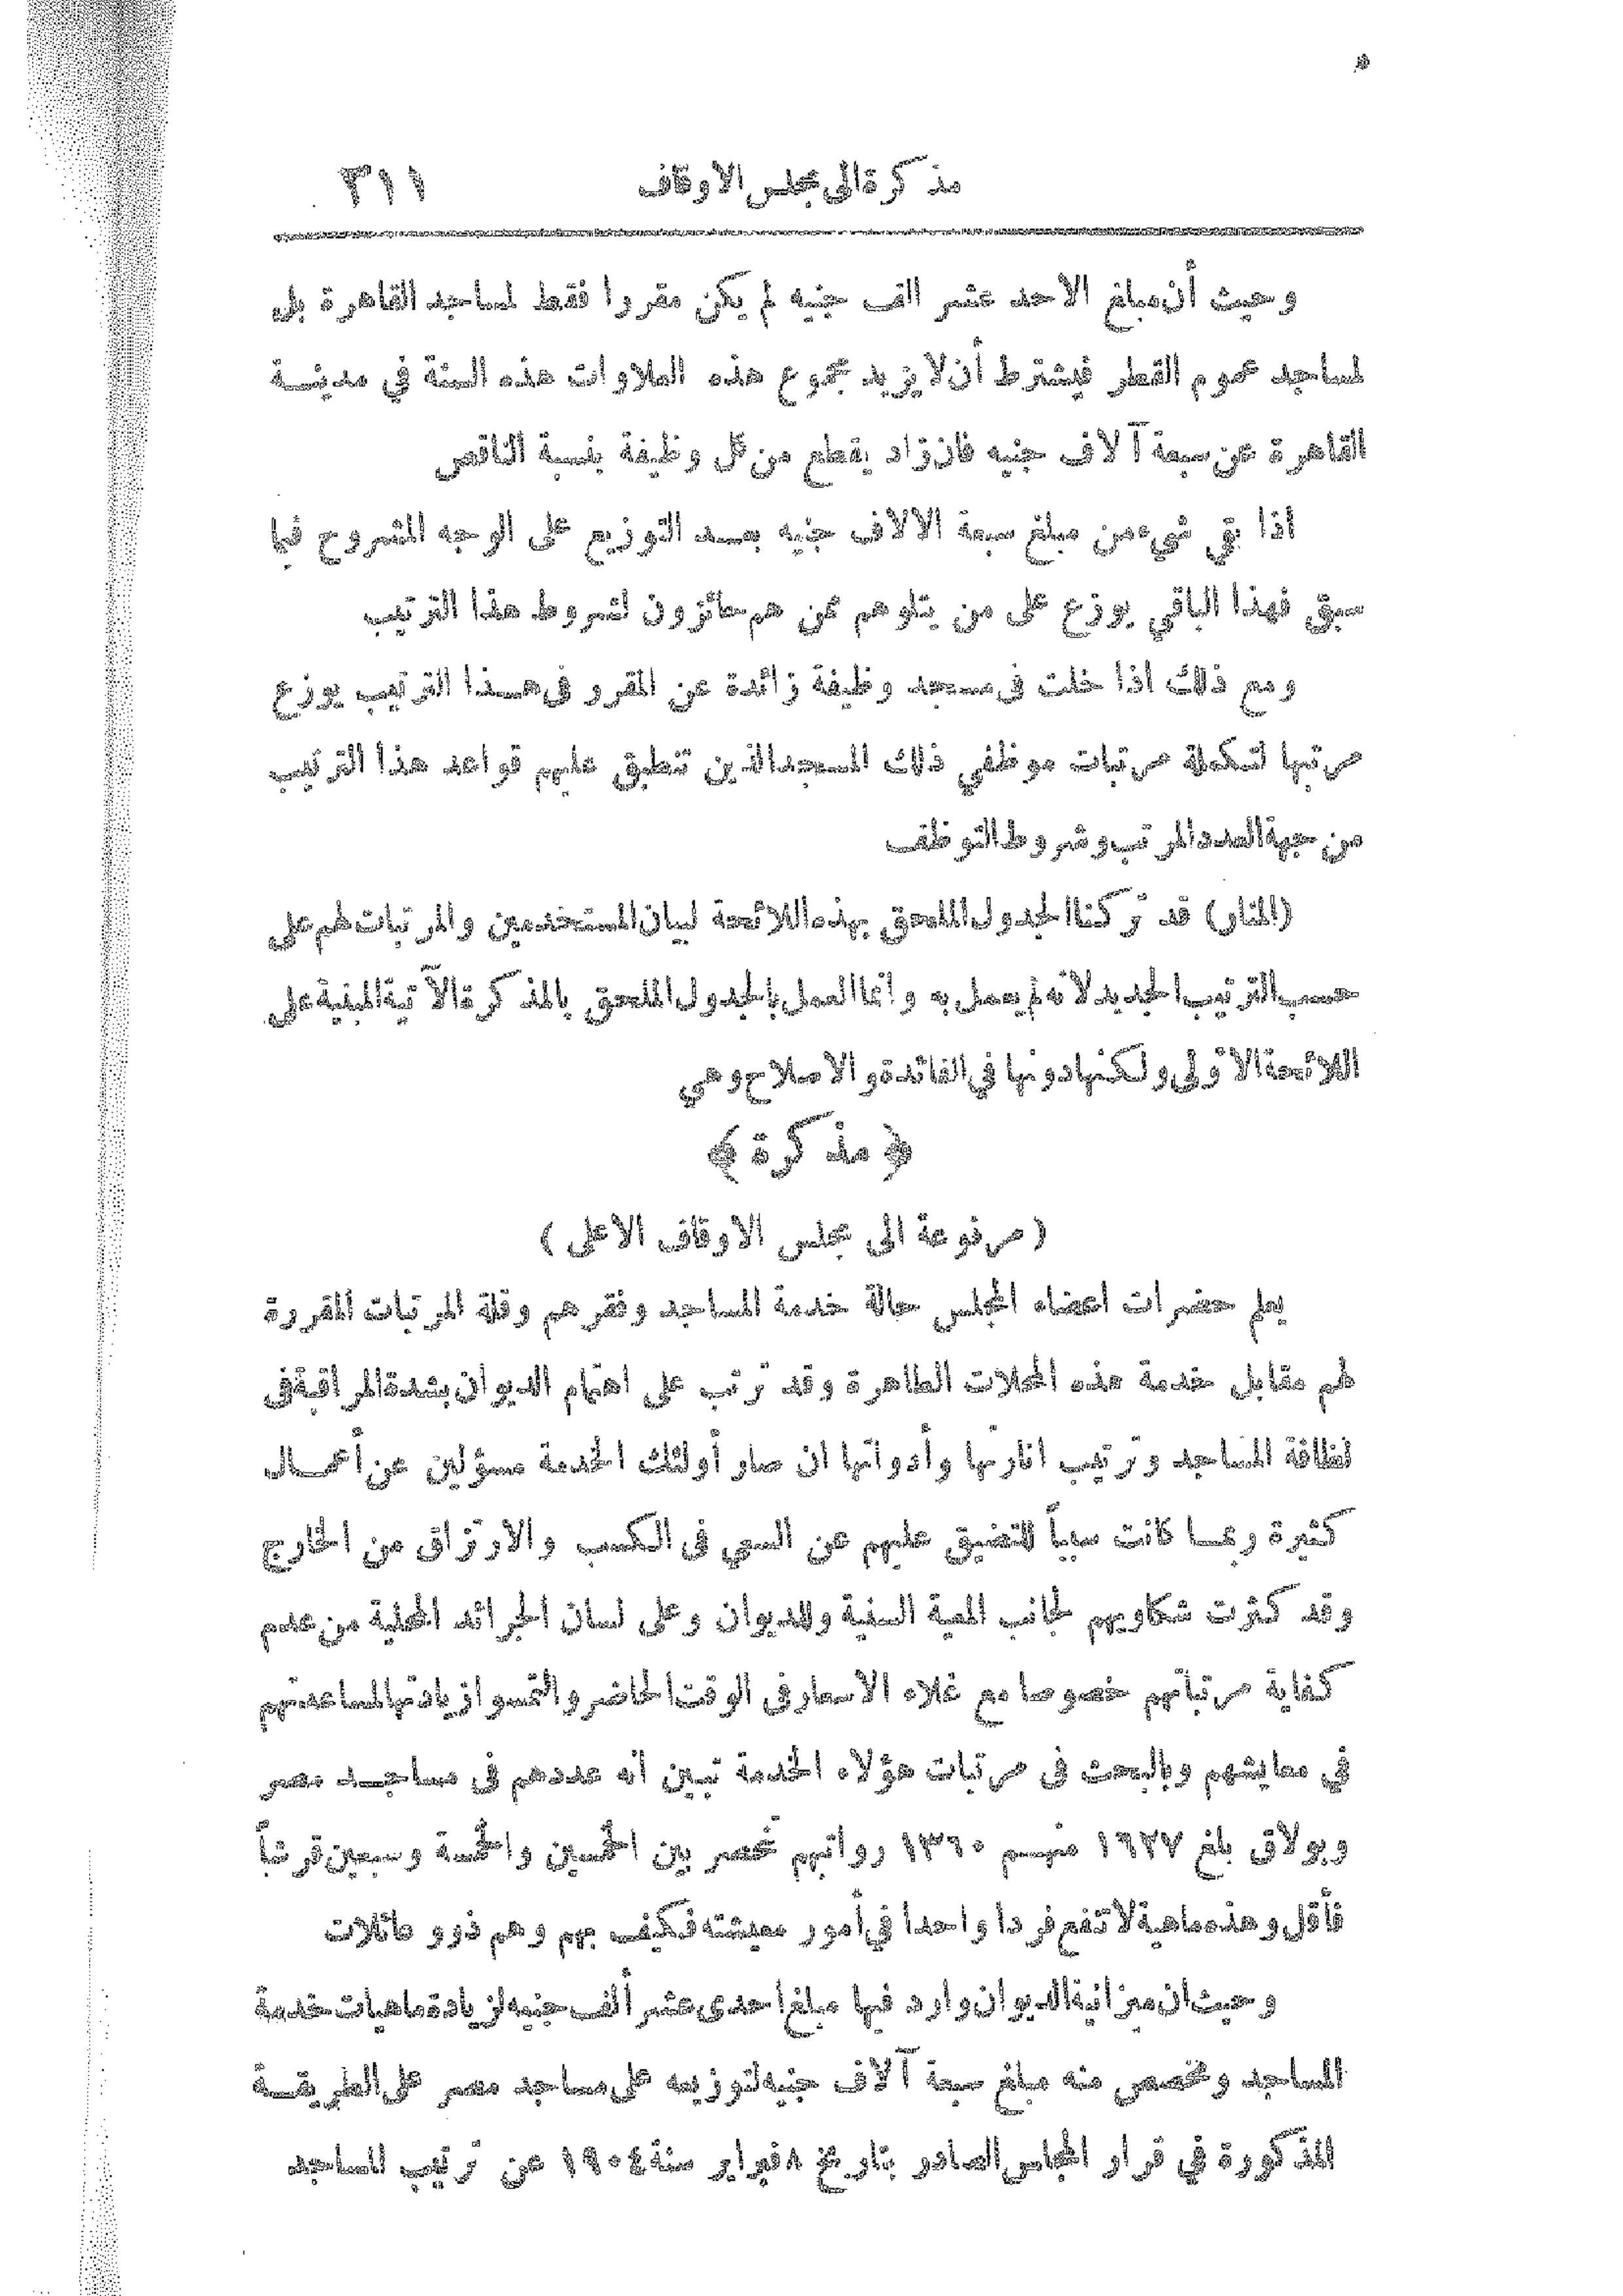 مذكرة الى مجلس الاوقاف ٣١١
وحيث أن مبلغ الاحد عشر الف جنيه لم يكن مقررا فقط لمساجد القاهرة بل
لمساجد عموم القطر فيشترط أن لا يزيد مجموع هذه العلاوات هذه السنة في مدينة
القاهرة عن سبعة آلاف جنيه فان زاد يقطع من كل وظيفة بنسبة الناقص
اذا بقي شيء من مبلغ سبعة الالاف جنيه بعد التوزيع على الوجه المشروح فيما
سبق فهذا الباقي يوزع على من يتلوهم ممن هم حائزون لشروط هذا الترتيب
ومع ذلك اذا خلت في مسجد وظيفة زائدة عن المقرر في هذا الترتيب يوزع
مرتبها لتكملة مرتبات موظفي ذلك المسجد الذين تنطبق عليهم قواعد هذا الترتيب
من جهة العدد المرتب وشروط التوظف
(المنار) قد تركنا الجدول الملحق بهذه اللائحة لبيان المستخدمين والمرتبات لهم على
حسب الترتيب الجديد لأنه لم يعمل به وانما العمل بالجدول الملحق بالمذكرة الآتية المبنية على
اللائحة الأولى ولكنها دونها في الفائدة والاصلاح وهي
﴿ مذكرة ﴾
( مرفوعة الى مجلس الاوقاف الاعلى )
يعلم حضرات اعضاء المجلس حالة خدمة المساجد وفقرهم وقلة المرتبات المقررة
لهم مقابل خدمة هذه المحلات الطاهرة وقد ترتب على اهتمام الديوان بشدة المراقبة في
نظافة المساجد وترتيب انارتها وأدواتها ان صار أولئك الخدمة مسؤلين عن أعمال
كثيرة ربما كانت سبباً للتضيق عليهم عن السعي في الكسب والارتزاق من الخارج
وقد كثرت شكاويهم لجانب المعية السنية وللديوان وعلى لسان الجرائد المحلية من عدم
كفاية مرتباتهم خصوصا مع غلاء الاسعار في الوقت الحاضر والتمسوا زيادتها لمساعدتهم
في معايشهم وبالبحث في مرتبات هؤلاء الخدمة تبين انه عددهم في مساجد مصر
وبولاق بلغ ١٦٢٧ منهم ١٣٦٠ رواتبهم تنحصر بين الخمسين والخمسة وسبعين قرشاً
فأقل وهذه ماهية لا تنفع فردا واحدا في أمور معيشته فكيف بهم وهم ذوو عائلات
وحيث ان ميزانية الديوان وارد فيها مبلغ احدى عشر ألف جنيه لزيادة ماهيات خدمة
المساجد ومخصص منه مبلغ سبعة آلاف جنيه لتوزيعه على مساجد مصر على الطريقة
المذكورة في قرار المجلس الصادر بتاريخ ٨ فبراير سنة ١٩٠٤ عن ترتيب المساجد